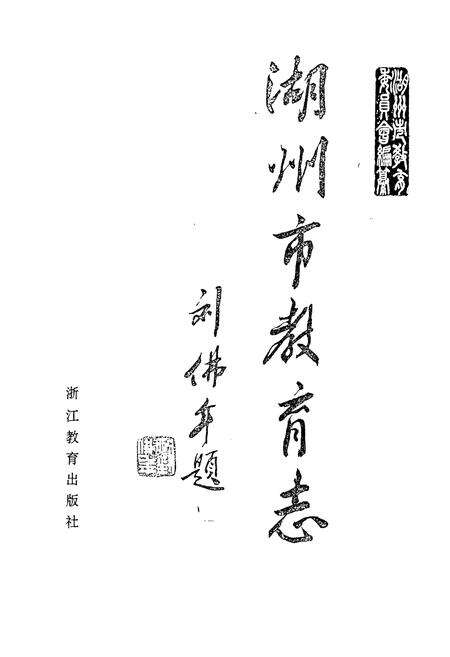 湖州市教育
委员会编纂
湖州市教育志
刘佛年题
浙江教育出版社